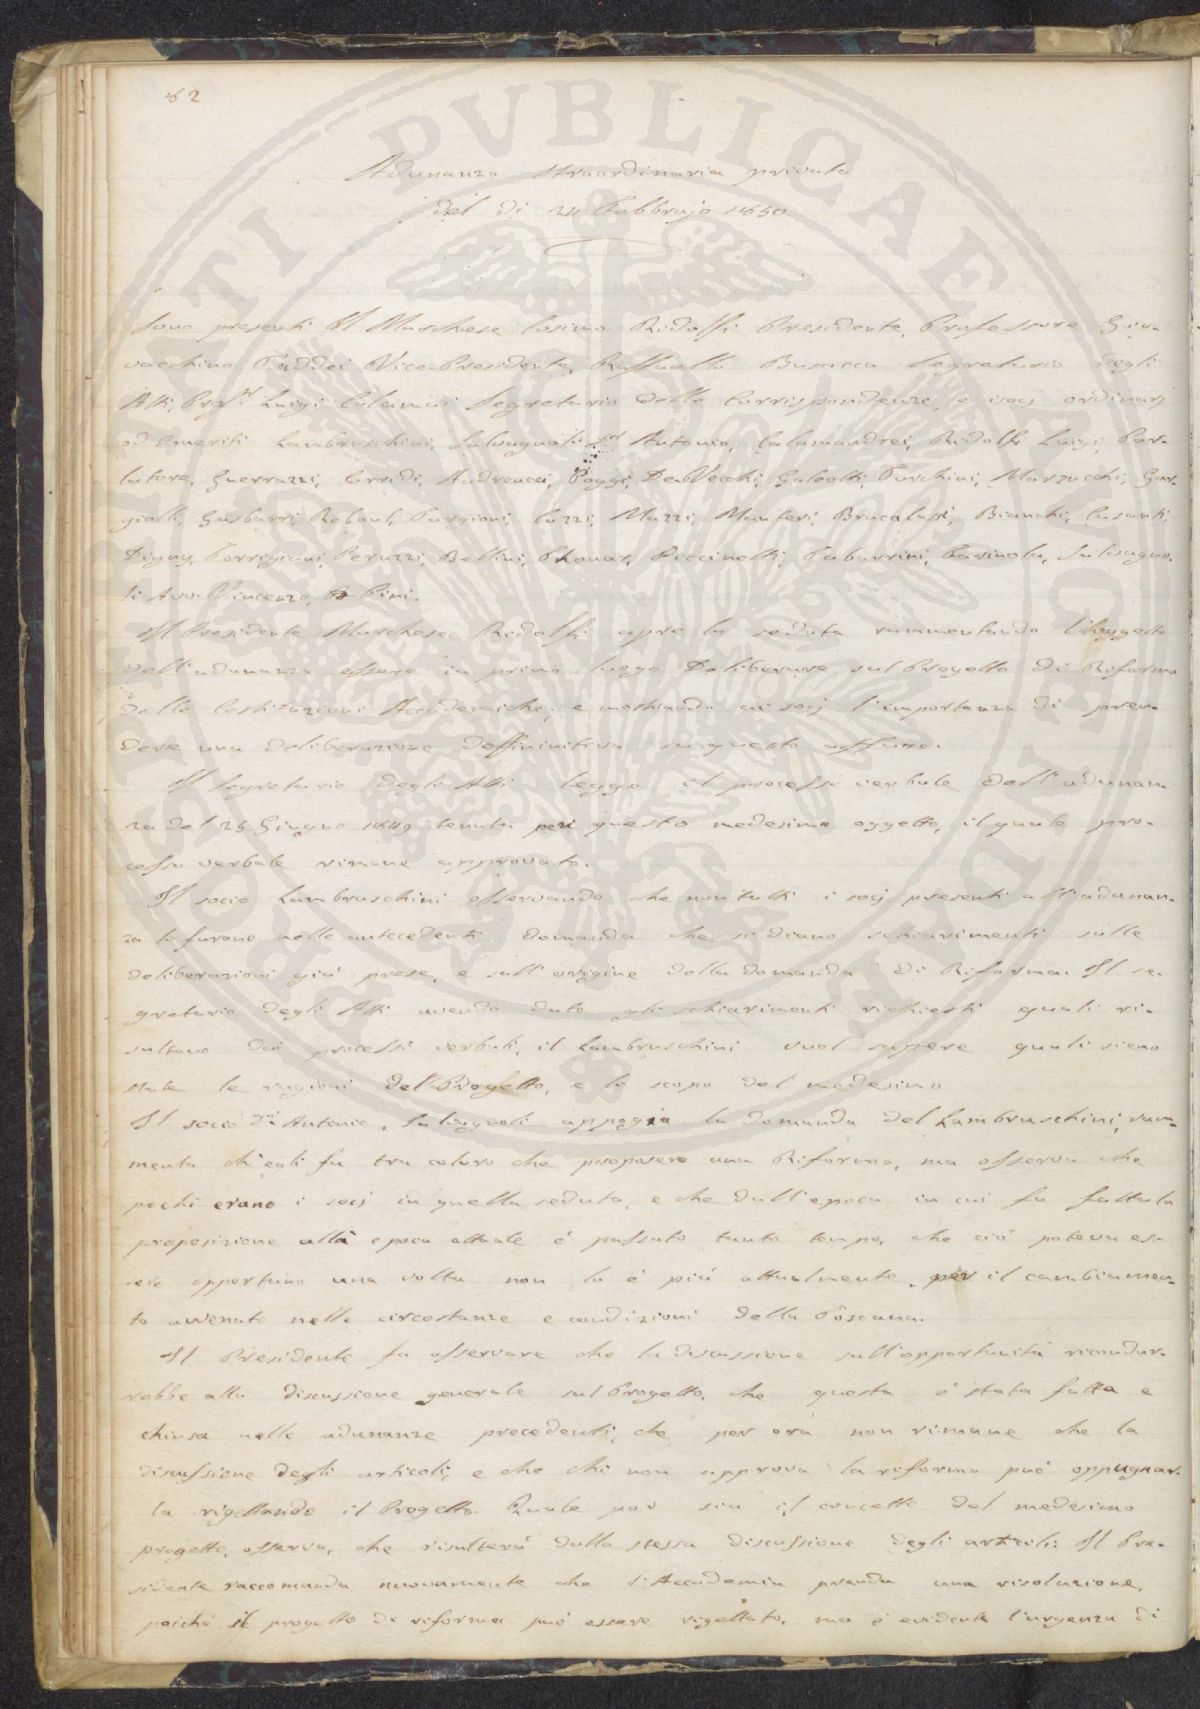 62
Adunanza straordinaria privata
del dì 24 Febbrajo 1850
Sono presenti Il Marchese Cosimo Ridolfi Presidente, Professore Gio-
vacchino Taddei Vice-Presidente, Raffaello Busacca Segretario degli
Atti, Prof.r Luigi Calamai Segretario delle Corrispondenze, e i socj ordinarj
ed Emeriti Lambruschini, Salvagnoli Antonio, Calamandrei, Ridolfi Luigi, Par-
latore, Guerrazzi, Corridi, Andreucci, Poggi, De Vecchi, Galeotti, Turchini, Marzucchi, Gar-
giolli, Gasbarri, Reboul, Targioni, Cuzzi, Mazzi, Manteri, Brucalassi, Bianchi, Casanti,
Digny, Torrigiani, Peruzzi, Bellini, Thouar, Piccinetti, Tabarrini, Farinola, Salvagno-
li Avv. Vincenzo, Pini.
Il Presidente Marchese Ridolfi apre la seduta rammentando l'oggetto
dell'adunanza essere in primo luogo Deliberare sul Progetto di Riforma
delle Costituzioni Accademiche, e mostrando ai socj l'importanza di pren-
dere una deliberazione deffinitiva su questo affare.
Il Segretario degli Atti legge il processo verbale dell'adunan-
za del 25 Giugno 1849 tenuta per questo medesimo oggetto, il quale pro-
cesso verbale rimane approvato.
Il socio Lambruschini osservando che non tutti i socj presenti all'adunan-
za lo furono nelle antecedenti domanda che si diano schiarimenti sulle
deliberazioni già prese, e sull'origine della domanda di Riforma. Il se-
gretario degli Atti avendo dato gli schiarimenti richiesti quali ri-
sultano dai processi verbali, il Lambruschini vuol sapere quali sieno
state le ragioni del Progetto, e lo scopo del medesimo
Il socio Antonio Salvagnoli appoggia la domanda del Lambruschini, ram-
menta ch'egli fu tra coloro che proposero una Riforma, ma osserva che
pochi erano i socj in quella seduta, e che dall'epoca in cui fu fatta la
proposizione alla epoca attuale è passato tanto tempo, che ciò poteva es-
sere opportuno una volta non lo è più attualmente, per il cambiamen-
to avvenuto nelle circostanze e condizioni della Toscana.
Il Presidente fa osservare che la discussione sull'opportunità ricondur-
rebbe alla discussione generale sul Progetto, che questa è stata fatta e
chiusa nelle adunanze precedenti, che per ora non rimane che la
discussione degli articoli, e che chi non approva la riforma può oppugnar-
la rigettando il Progetto. Quale poi sia il concetto del medesimo
progetto, osserva, che risulterà dalla stessa discussione degli articoli: Il Pre-
sidente raccomanda nuovamente che l'Accademia prenda una risoluzione,
poiché il progetto di riforma può essere rigettato, ma è evidente l'urgenza di